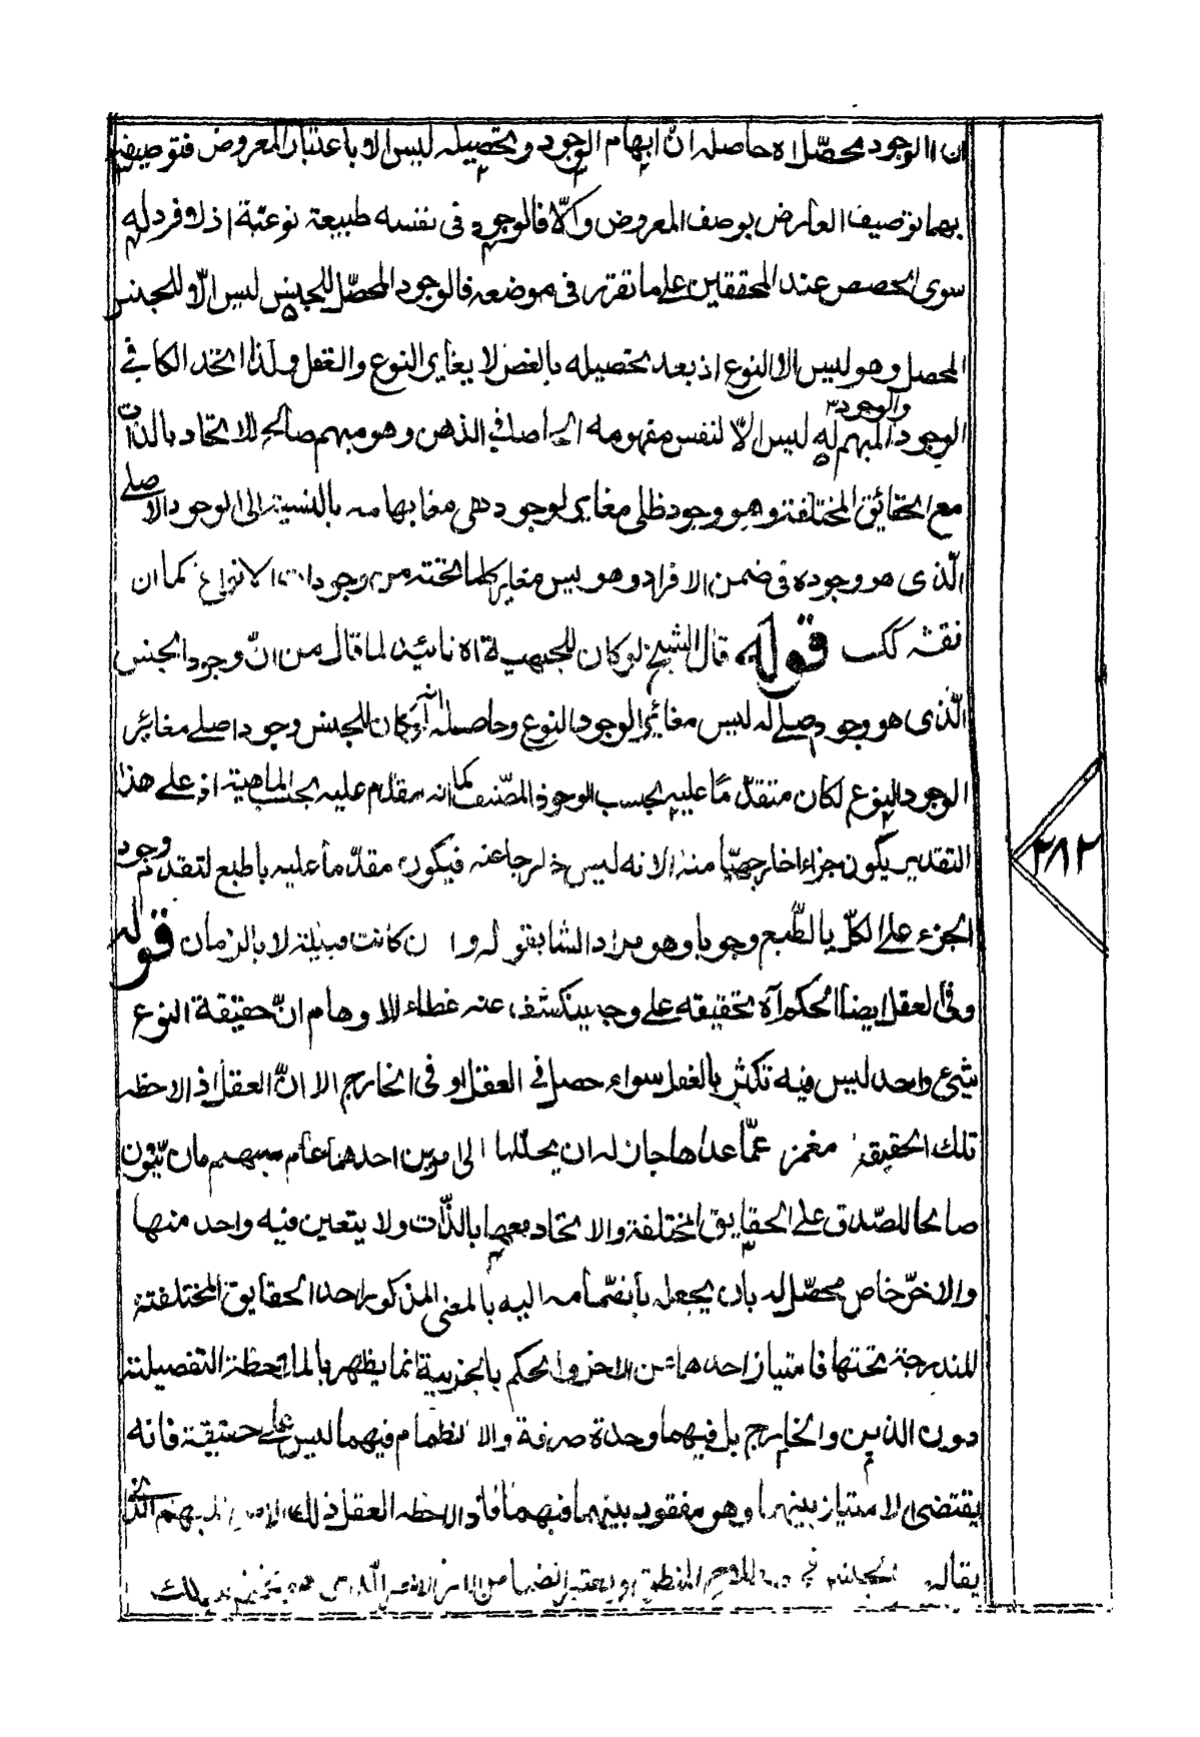 ان الوجود محصّل اه حاصله انّ ابهام الوجود وتحصيله ليس الا باعتبار المعروض فتوصيفه
بهما توصيف العارض بوصف المعروض والّا فالوجود فى نفسه طبيعة نوعيّة اذ لا فرد له
سوى الحصص عند المحققين على ما تقرر فى موضعه فالوجود المحصّل للجنس ليس الّا للجنس
المحصل وهو ليس الا النوع اذ بعد تحصيله بالفصل لا يغاير النوع والفصل ولذا اتحد الكل فى
والوجود
الوجود المبهم له ليس الّا لنفس مفهومه الحاصل فى الذهن وهو مبهم صالح للاتحاد بالذات
مع الحقائق المختلفة وهو وجود ظلى مغاير لوجود هى مغابهامه بالنسبة الى الوجود الاصلى
الّذى هو وجوده فى ضمن الافراد وهو ليس مغاير لما تحته من وجودات الانواع كما ان
نفسه كك قوله قال الشيخ لو كان للجنسية اه تائيد لما قال من انّ وجود الجنس
الّذى هو وجود اصلى له ليس مغائر الوجود النوع وحاصله انه لو كان للجنس وجود اصلى مغائر
الوجود النوع لكان متقدّما عليه بحسب الوجود المصنف كما انه مقدم عليه بحسب الماهية اذ على هذا
التقدير يكون جزاء اخارجيّا منه الا انه ليس خارجا عنه فيكون مقدّما عليه باطبع لتقدم وجود
الجزء على الكلّ بالطّبع وجوبا وهو مراد الشا بقوله وان كانت قبيلة لا بالزمان قوله
وفى العقل ايضا الحكم آه تحقيقه على وجه ينكشف عنه غطاء الاوهام انّ حقيقة النوع
شىء واحد ليس فيه تكثر بالفعل سواء حصل فى العقل او فى الخارج الا انّ العقل اذ الاحظ
تلك الحقيقة مغمز عمّا عداها جان له ان يحللها الى امرين احدهما عام مبهم مان يّكون
صالحا للصّدق على الحقايق المختلفة والاتحاد معها بالذّات ولا يتعين فيه واحد منها
والاخر خاص محصّل له بان يجعل بانضّمامه اليه بالمعنى المذكور احد الحقايق المختلفة
المندرجة تحتها فامتياز احدهما من الاخر والحكم بالجزئية انما يظهر بالملاحظة التفصيلية
دون الذهن والخارج بل فيهما وحدة صرفة والانظمام فيهما ليس على حقيقة فانه
يقتضى الامتياز بينهما وهو مفقود بينهما فيهما فاذا لاحظ العقل ذلك الامر المبهم الذى
يقال له الجنس فى